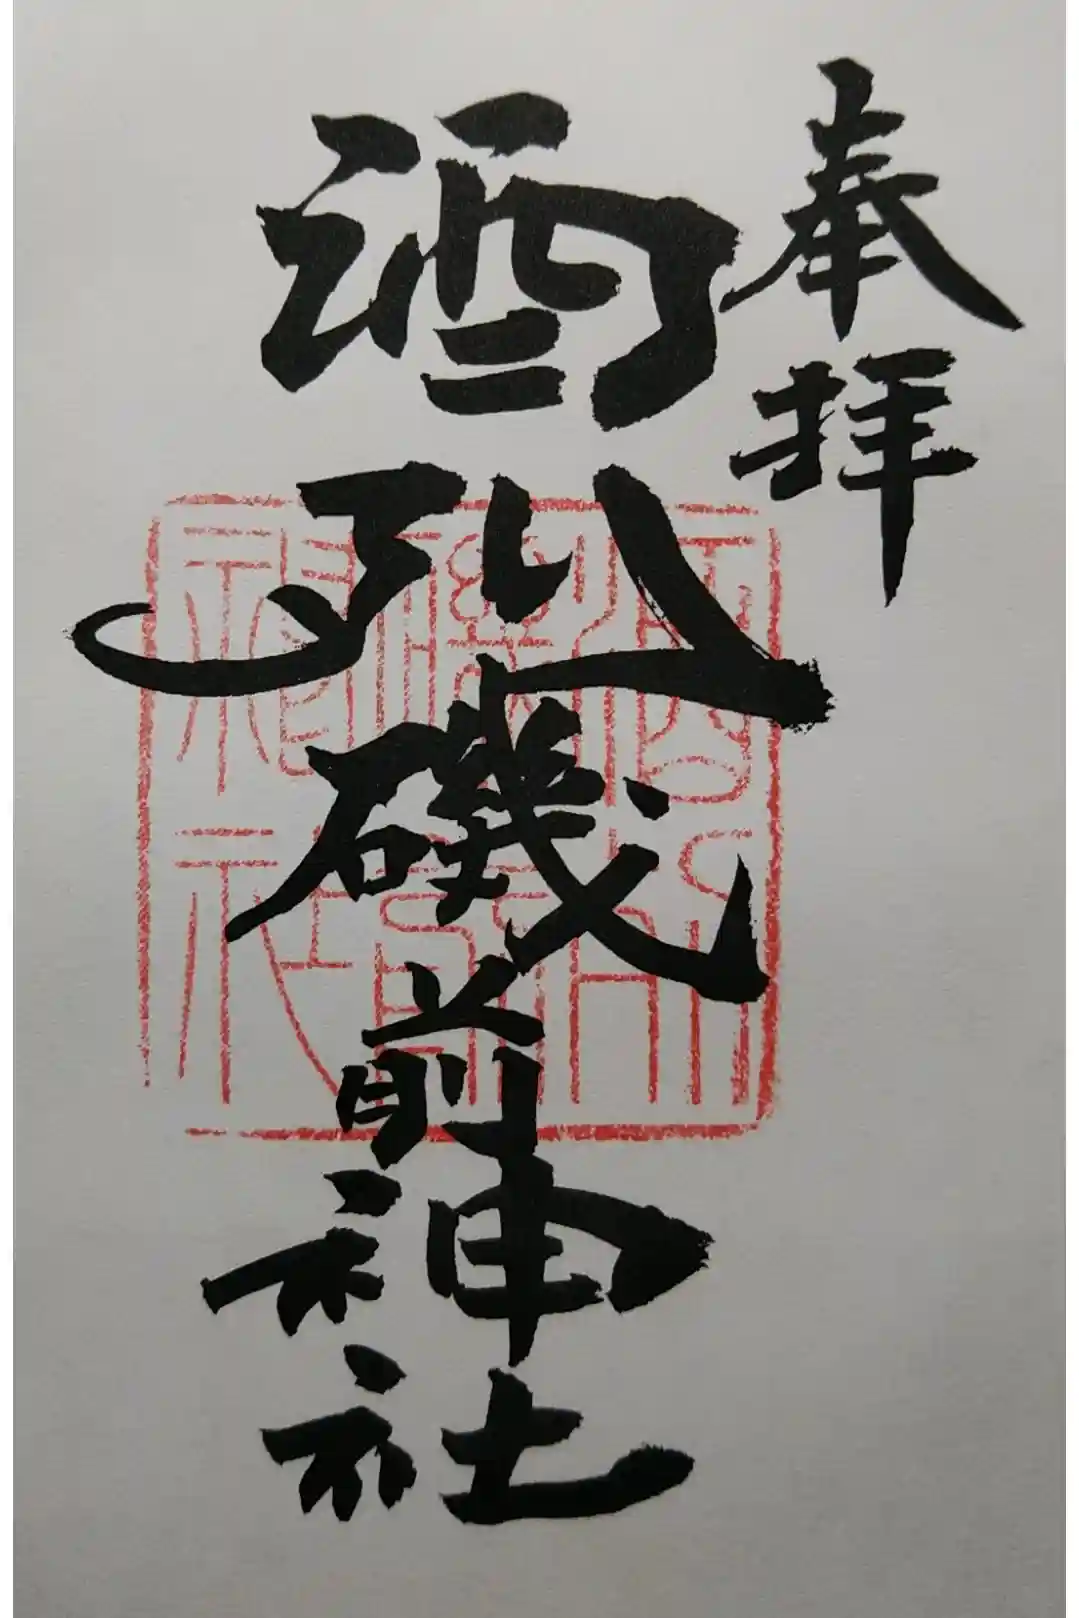 奉拝
酒列磯前神社
酒列磯前神社